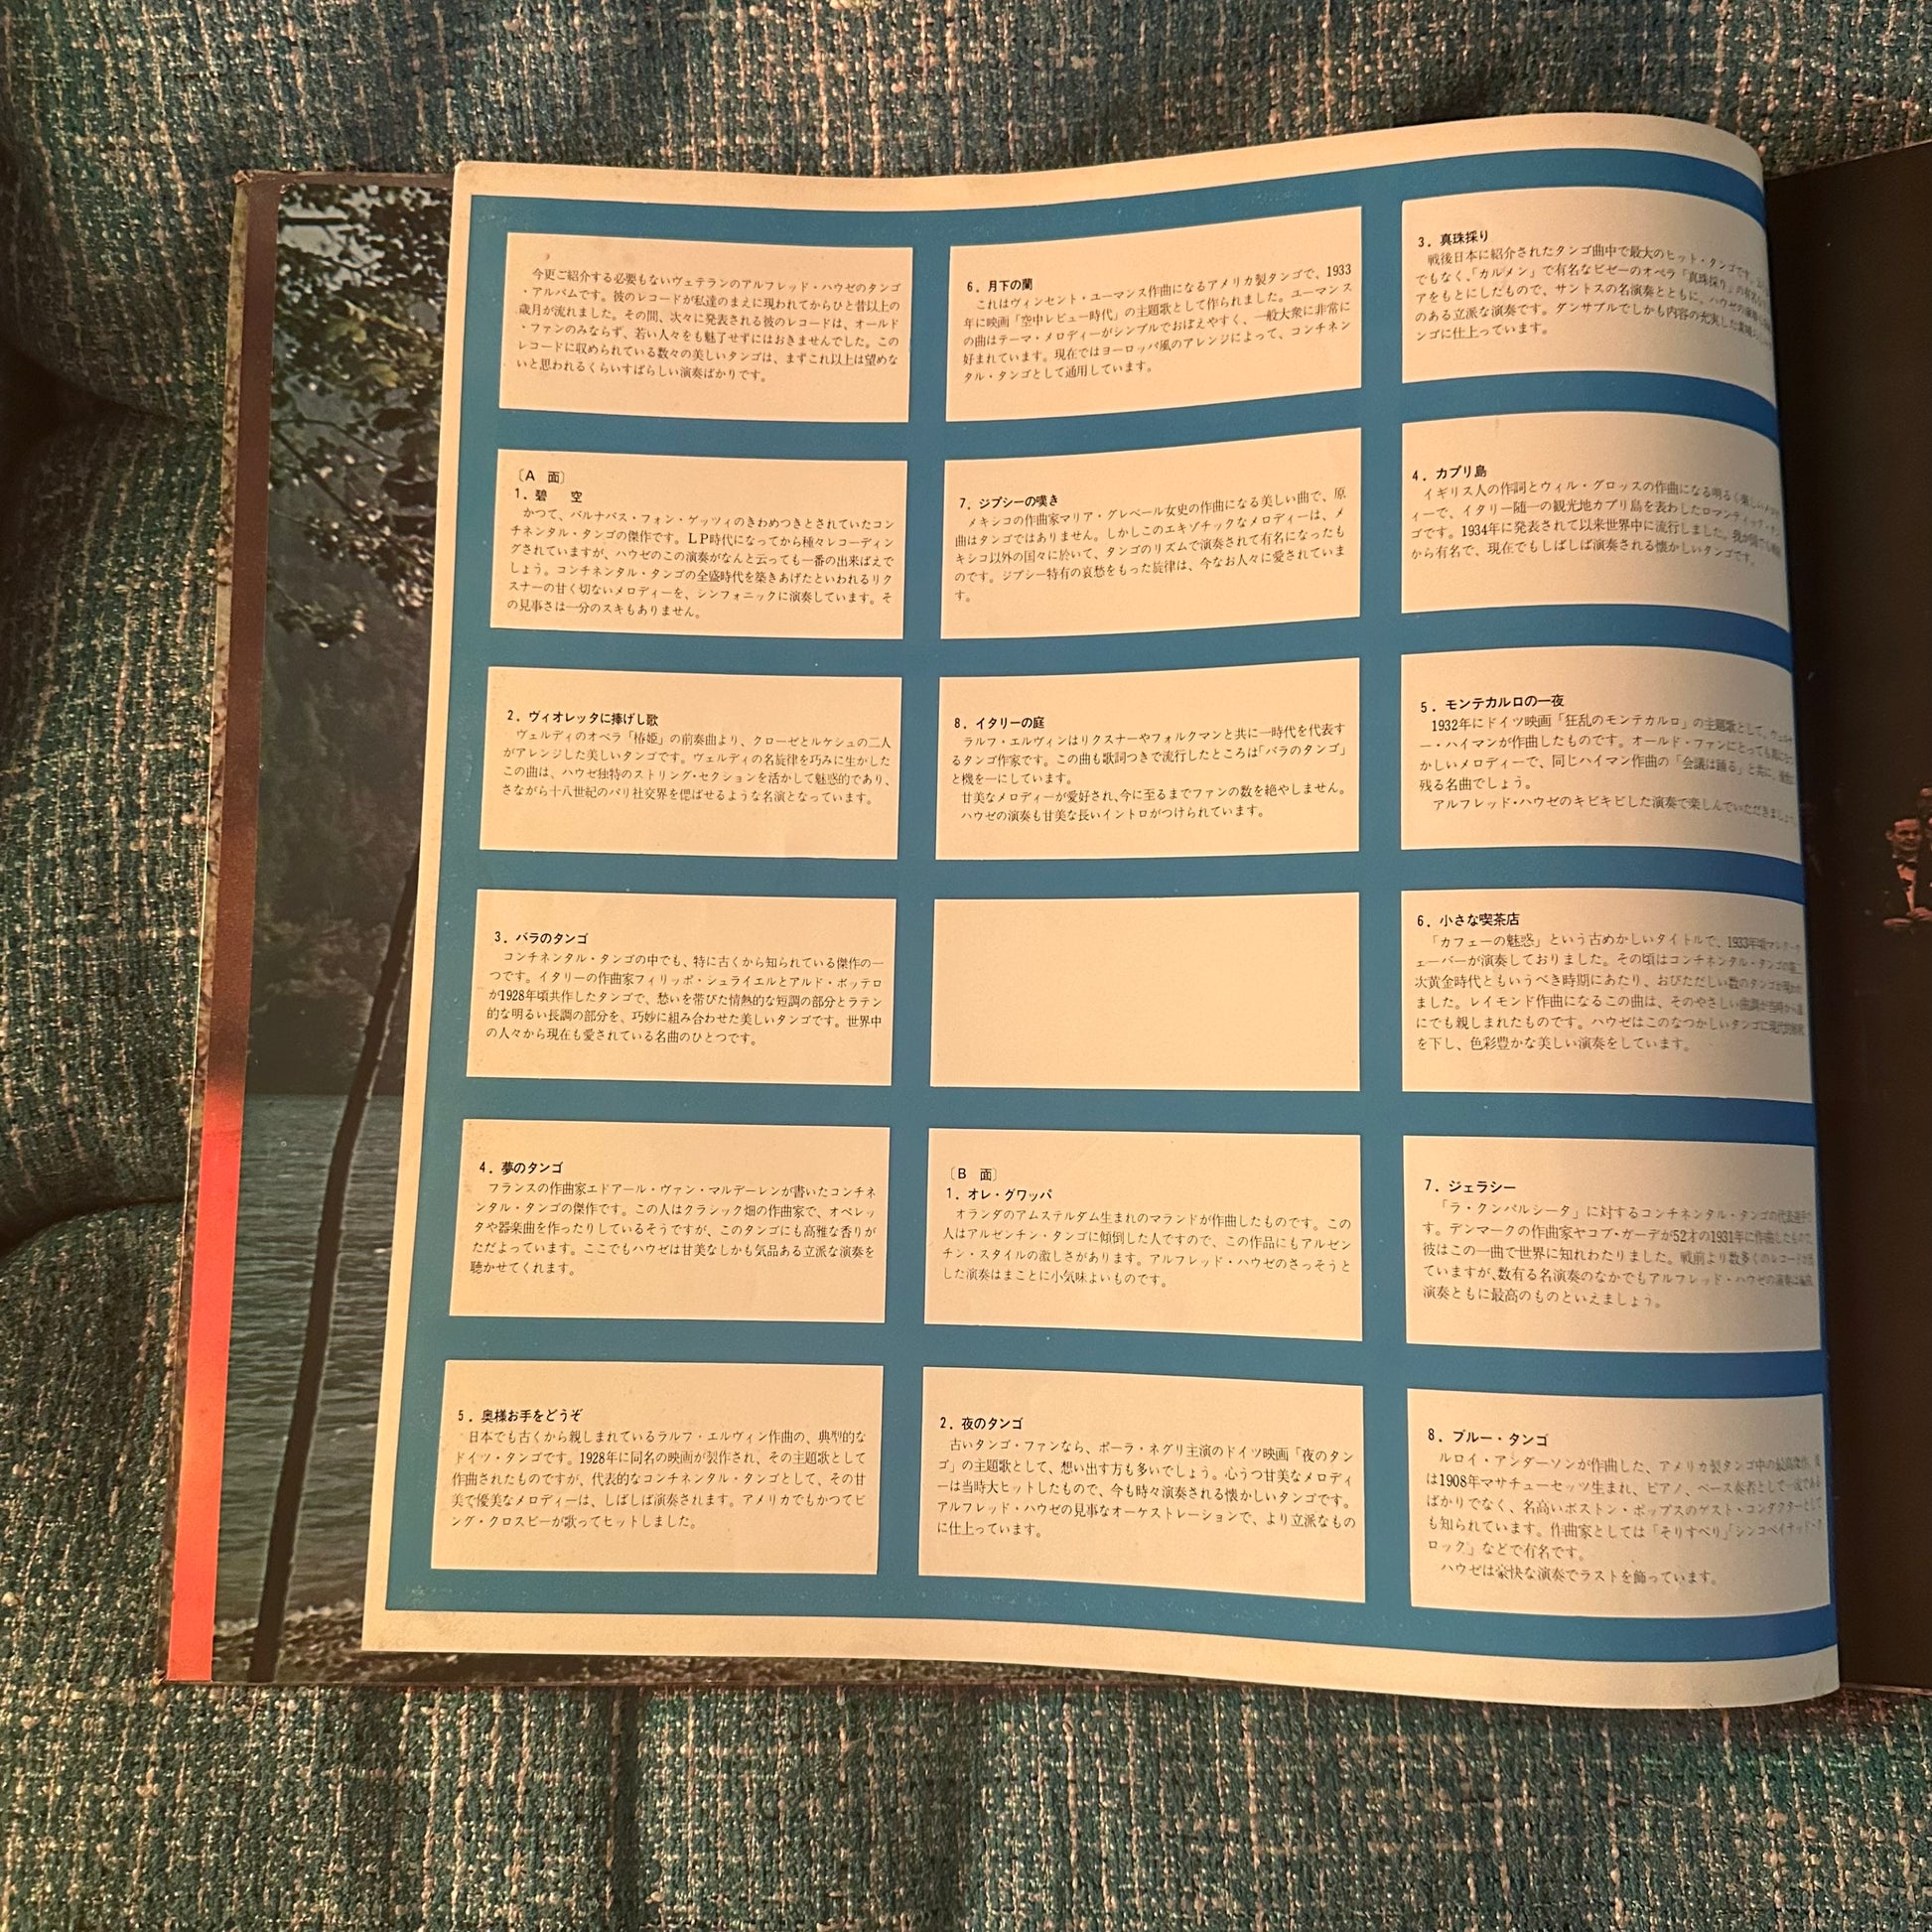 今更ご紹介する必要もないヴェテランのアルフレッド・ハウゼのタンゴ
・アルバムです。彼のレコードが私達のまえに現われてからひと昔以上の
歳月が流れました。その間、次々に発表される彼のレコードは、オールド
・ファンのみならず、若い人々をも魅了せずにはおきませんでした。この
レコードに収められている数々の美しいタンゴは、まずこれ以上は望めな
いと思われるくらいすばらしい演奏ばかりです。
〔A 面〕
1. 碧 空
かつて、バルナバス・フォン・ゲッツィのきわめつきとされていたコン
チネンタル・タンゴの傑作です。LP時代になってから種々レコーディン
グされていますが、ハウゼのこの演奏がなんと云っても一番の出来ばえで
しょう。コンチネンタル・タンゴの全盛時代を築きあげたといわれるリク
スナーの甘く切ないメロディーを、シンフォニックに演奏しています。そ
の見事さは一分のスキもありません。
2. ヴィオレッタに捧げし歌
ヴェルディのオペラ「椿姫」の前奏曲より、クローゼとルケシュの二人
がアレンジした美しいタンゴです。ヴェルディの名旋律を巧みに生かした
この曲は、ハウゼ独特のストリング・セクションを活かして魅惑的であり、
さながら十八世紀のパリ社交界を偲ばせるような名演となっています。
3. バラのタンゴ
コンチネンタル・タンゴの中でも、特に古くから知られている傑作の一
つです。イタリーの作曲家フィリッポ・シュライエルとアルド・ボッテロ
が1928年頃共作したタンゴで、愁いを帯びた情熱的な短調の部分とラテン
的な明るい長調の部分を、巧妙に組み合わせた美しいタンゴです。世界中
の人々から現在も愛されている名曲のひとつです。
4. 夢のタンゴ
フランスの作曲家エドアール・ヴァン・マルデーレンが書いたコンチネ
ンタル・タンゴの傑作です。この人はクラシック畑の作曲家で、オペレッ
タや器楽曲を作ったりしているそうですが、このタンゴにも高雅な香りが
ただよっています。ここでもハウゼは甘美なしかも気品ある立派な演奏を
聴かせてくれます。
5. 奥様お手をどうぞ
日本でも古くから親しまれているラルフ・エルヴィン作曲の、典型的な
ドイツ・タンゴです。1928年に同名の映画が製作され、その主題歌として
作曲されたものですが、代表的なコンチネンタル・タンゴとして、その甘
美で優美なメロディーは、しばしば演奏されます。アメリカでもかつてビ
ング・クロスビーが歌ってヒットしました。
6. 月下の蘭
これはヴィンセント・ユーマンス作曲になるアメリカ製タンゴで、1933
年に映画「空中レビュー時代」の主題歌として作られました。ユーマンス
の曲はテーマ・メロディーがシンプルでおぼえやすく、一般大衆に非常に
好まれています。現在ではヨーロッパ風のアレンジによって、コンチネン
タル・タンゴとして通用しています。
7. ジプシーの嘆き
メキシコの作曲家マリア・グレベール女史の作曲になる美しい曲で、原
曲はタンゴではありません。しかしこのエキゾチックなメロディーは、メ
キシコ以外の国々に於いて、タンゴのリズムで演奏されて有名になったも
のです。ジプシー特有の哀愁をもった旋律は、今なお人々に愛されていま
す。
8. イタリーの庭
ラルフ・エルヴィンはリクスナーやフォルクマンと共に一時代を代表す
るタンゴ作家です。この曲も歌詞つきで流行したところは「バラのタンゴ」
と機を一にしています。
甘美なメロディーが愛好され、今に至るまでファンの数を絶やしません。
ハウゼの演奏も甘美な長いイントロがつけられています。
〔B 面〕
1. オレ・グワッパ
オランダのアムステルダム生まれのマランドが作曲したものです。この
人はアルゼンチン・タンゴに傾倒した人ですので、この作品にもアルゼン
チン・スタイルの激しさがあります。アルフレッド・ハウゼのさっそうと
した演奏はまことに小気味よいものです。
2. 夜のタンゴ
古いタンゴ・ファンなら、ポーラ・ネグリ主演のドイツ映画「夜のタン
ゴ」の主題歌として、想い出す方も多いでしょう。心うつ甘美なメロディ
ーは当時大ヒットしたもので、今も時々演奏される懐かしいタンゴです。
アルフレッド・ハウゼの見事なオーケストレーションで、より立派なもの
に仕上っています。
3. 真珠採り
戦後日本に紹介されたタンゴ曲中で最大のヒット・タンゴです。
でもなく、「カルメン」で有名なビゼーのオペラ「真珠採り」の
アをもとにしたもので、サントスの名演奏とともに、ハウゼの
のある立派な演奏です。ダンサブルでしかも内容の充実した
ンゴに仕上っています。
4. カプリ島
イギリス人の作詞とウィル・グロッスの作曲になる明るく楽しいメロデ
ィーで、イタリー随一の観光地カプリ島を表わしたロマンティック・タン
ゴです。1934年に発表されて以来世界中に流行しました。
から有名で、現在でもしばしば演奏される懐かしいタンゴです。
5. モンテカルロの一夜
1932年にドイツ映画「狂乱のモンテカルロ」の主題歌として、
ー・ハイマンが作曲したものです。オールド・ファンにとっても
かしいメロディーで、同じハイマン作曲の「会議は踊る」と共に、
残る名曲でしょう。
アルフレッド・ハウゼのキビキビした演奏で楽しんでいただきましょう。
6. 小さな喫茶店
「カフェーの魅惑」という古めかしいタイトルで、1933年頃マレク・ウ
ェーバーが演奏しておりました。その頃はコンチネンタル・タンゴの第二
次黄金時代ともいうべき時期にあたり、おびただしい数のタンゴが現われ
ました。レイモンド作曲になるこの曲は、そのやさしい曲調が当時から誰
にでも親しまれたものです。ハウゼはこのなつかしいタンゴに現代的解釈
を下し、色彩豊かな美しい演奏をしています。
7. ジェラシー
「ラ・クンパルシータ」に対するコンチネンタル・タンゴの代表選手で
す。デンマークの作曲家ヤコブ・ガーデが52才の1931年に作曲したもので、
彼はこの一曲で世界に知れわたりました。戦前より数多くのレコードが出
ていますが、数有る名演奏のなかでもアルフレッド・ハウゼの演奏は編曲、
演奏ともに最高のものといえましょう。
8. ブルー・タンゴ
ルロイ・アンダーソンが作曲した、アメリカ製タンゴ中の最高傑作。彼
は1908年マサチューセッツ生まれ、ピアノ、ベース奏者として一流である
ばかりでなく、名高いボストン・ポップスのゲスト・コンダクターとして
も知られています。作曲家としては「そりすべり」「シンコペイテッド・ク
ロック」などで有名です。
ハウゼは豪快な演奏でラストを飾っています。